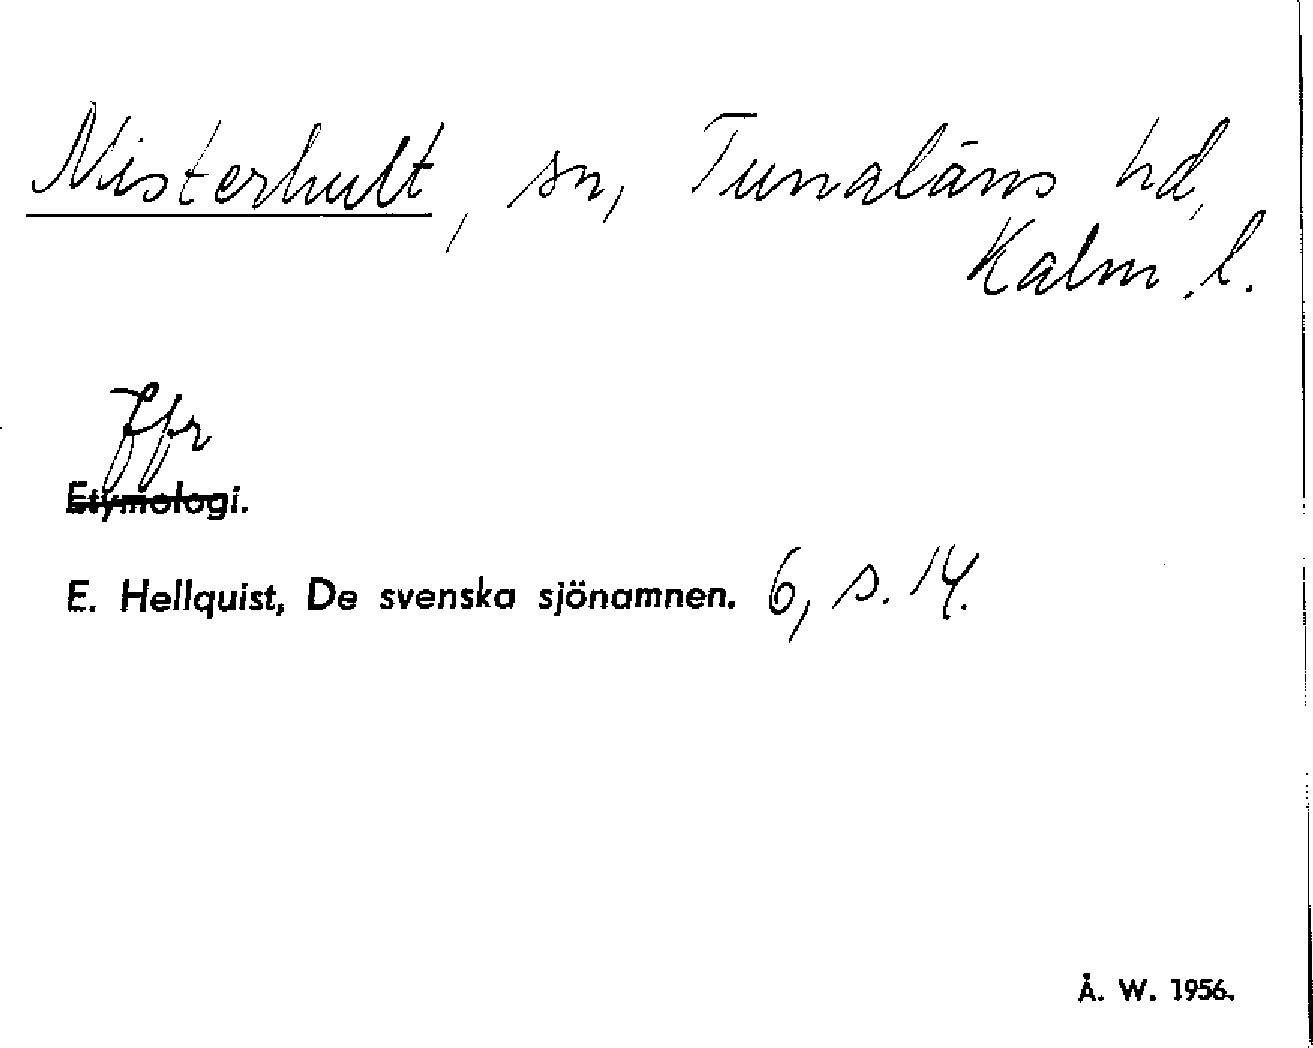 Misterhult, sn, Tunaläns hd,
Kalm. l.
Jfr
Etymologi.
E. Hellquist, De svenska sjönamnen. 6, s. 14.
Å. W. 1956.